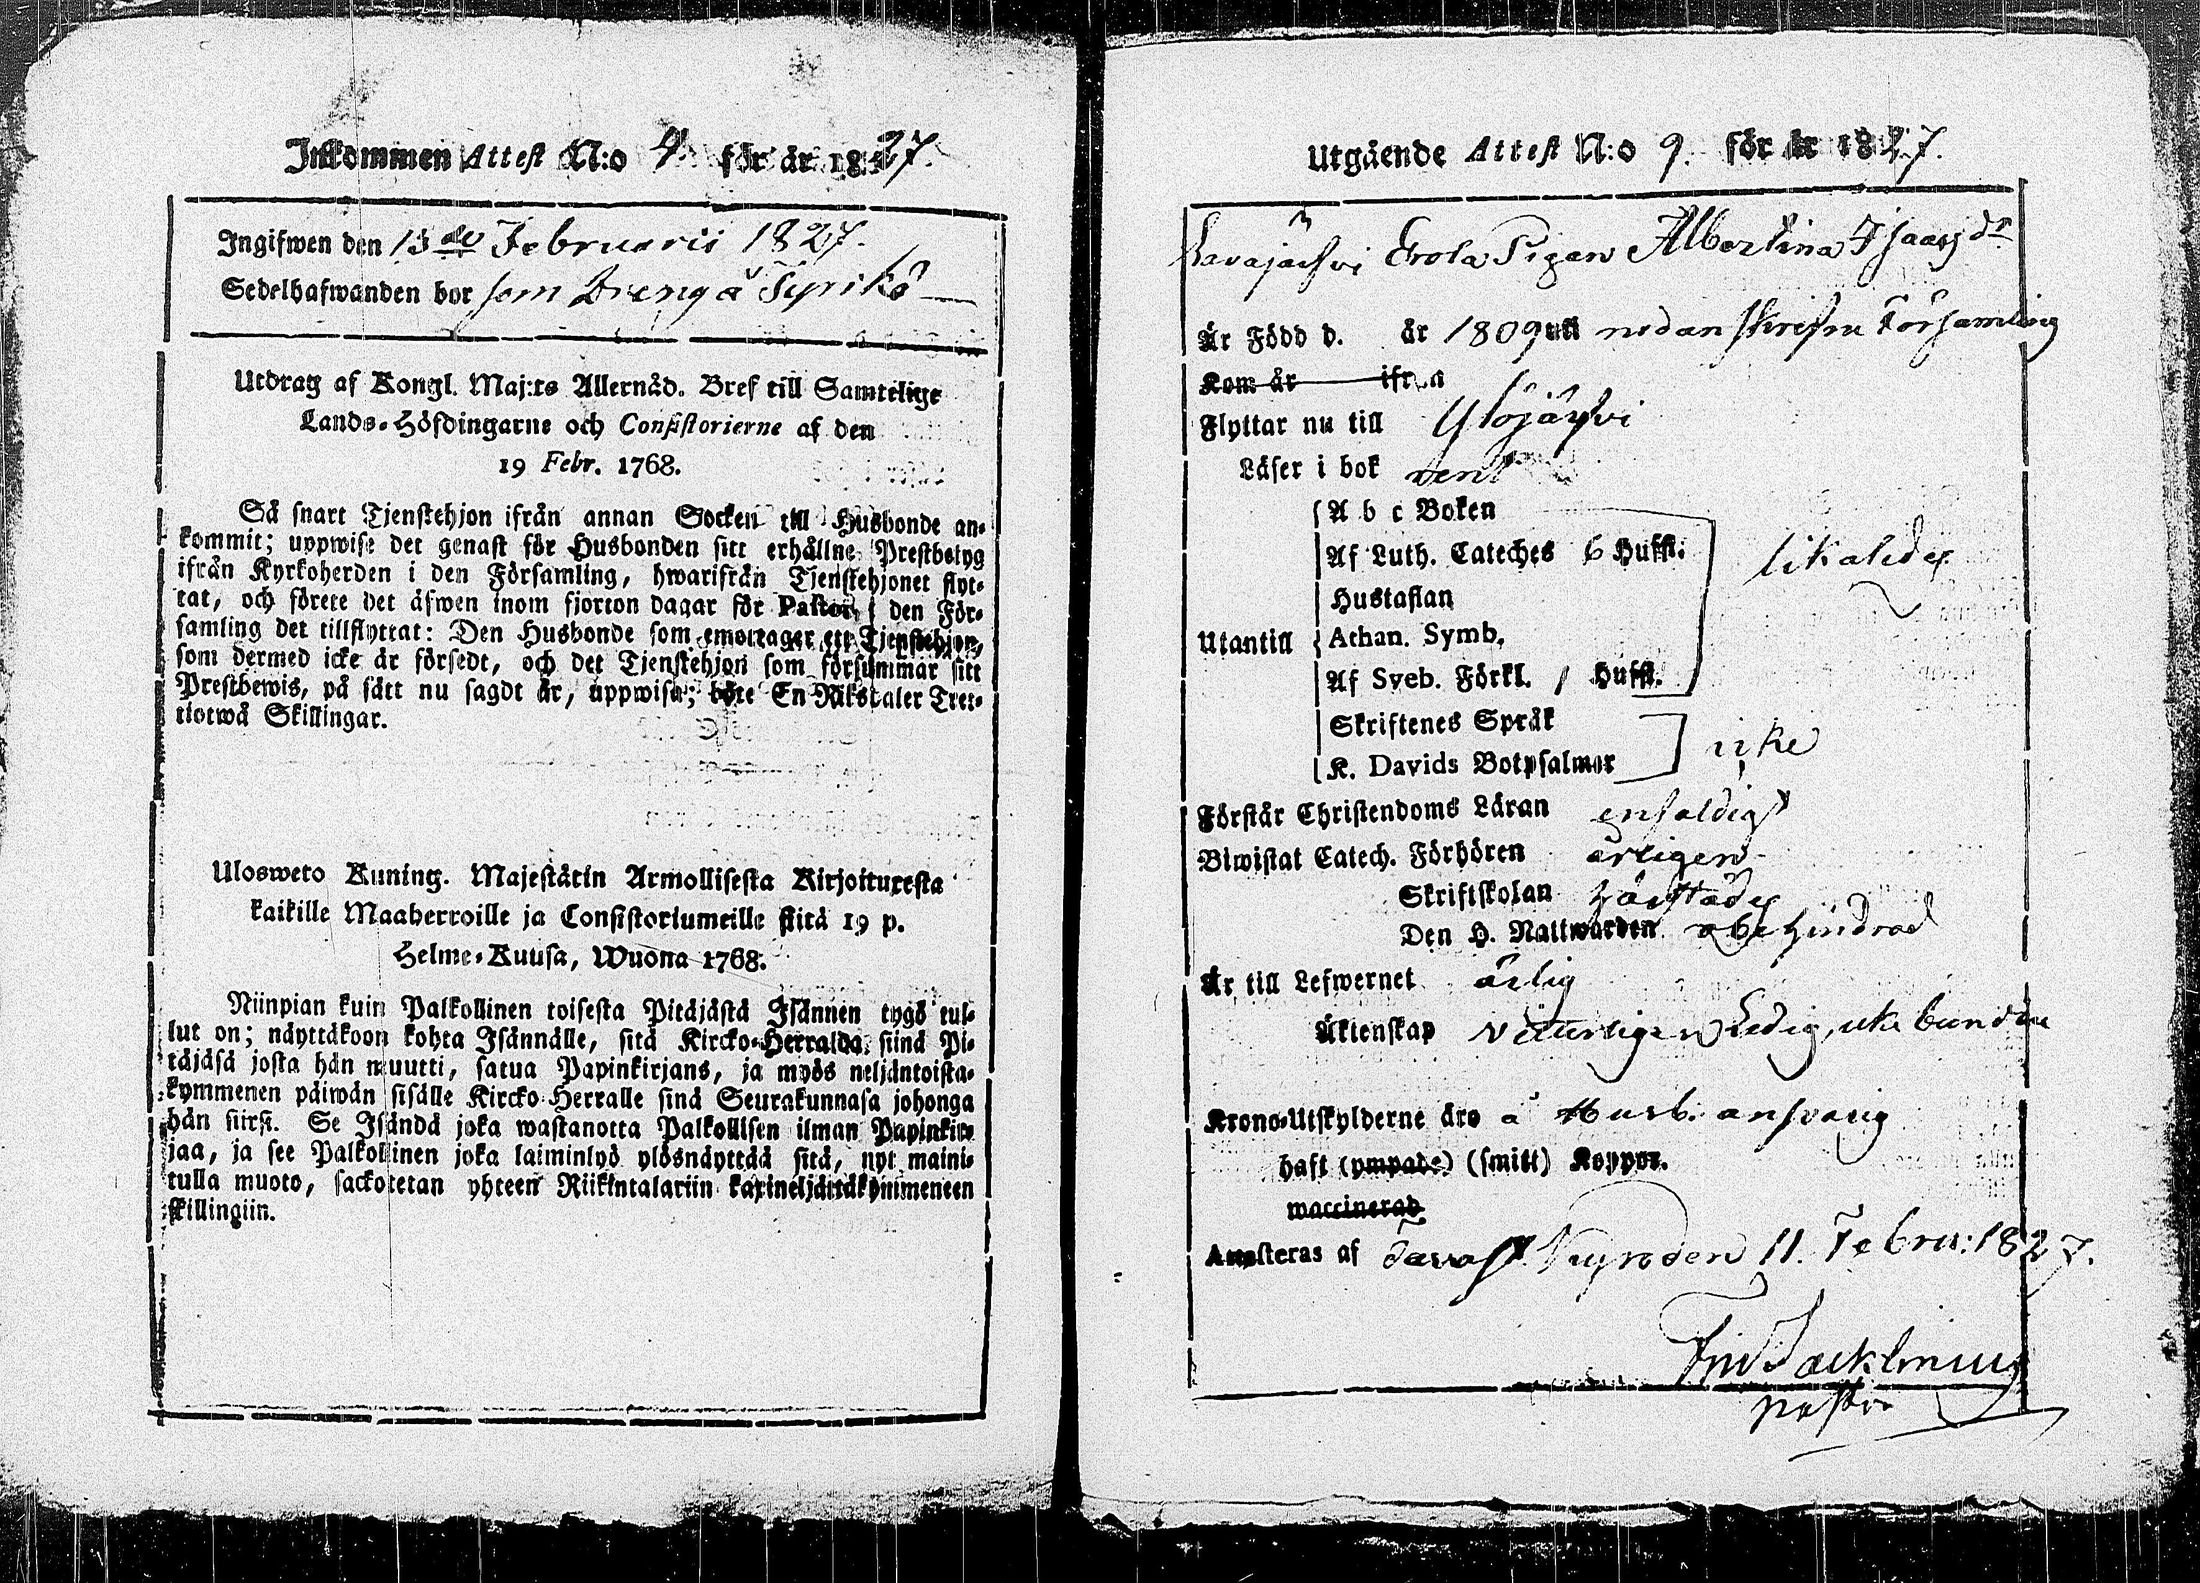 Inkommen Attest N:o 4. för år 1827.
Ingifwen den 13de Februarii 1827.
Sedelhafwanden bor som Dreng å Pyrikö
Utdrag af Kongl. Maj:ts Allernåd. Bref till Samtelige
Lands-Höfdingarne och Consistorierne af den
19 Febr. 1768.
Så snart Tjenstehjon ifrån annan Socken till Husbonde an-
kommit; uppwise det genast för Husbonden sitt erhållne Prestbetyg
ifrån Kyrkoherden i den Församling, hwarifrån Tjenstehjonet flyt-
tat, och förete det äfwen inom fjorton dagar för Pastor i den För-
samling det tillflyttat: Den Husbonde som emottager ett Tjenstehjon,
som dermed icke är försedt, och det Tjenstehjon som försummar sitt
Prestbewis, på sätt nu sagdt är, uppwisa; böte En Riksdaler Tret-
tiotwå Skillingar.
Ulosweto Kuning. Majestätin Armollisesta Kirjoituxesta
kaikille Maaherroille ja Consistoriumeille siitä 19 p.
Helme-Kuusa, Wuonna 1768.
Niinpian kuin Palkollinen toisesta Pitäjästä Isännen tygö tul-
lut on; näyttäkoon kohta Isännälle, sitä Kircko-Herralda, siinä Pi-
täjäsä josta hän muutti, satua Papinkirjans, ja myös neljäntoista-
kymmenen päiwän sisälle Kircko-Herralle sinä Seurakunnasa johonga
hän siirsi. Se Isändä joka wastanotta Palkollisen ilman Papinkir-
jaa, ja see Palkollinen joka laiminlyö ylösnäyttää sitä, nyt maini-
tulla muoto, sackotetan yhteen Riikintalariin kaxineljättäkymmeneen
skillingiin.
Utgående Attest N:o 9. för år 1827.
Pigan Albertina Isaacsdr
Är Född d. år 1809 uti nedanskrefne Församling
Kom år ifrån
Flyttar nu till Ylöjärfvi
Läser i bok rent
A b c Boken
Af Luth. Cateches 6 Hufst. likaledes
Hustaflan
Utantill Athan. Symb.
Af Sveb. Förkl. / Hufst.
Skriftenes Språk
K. Davids Botpsalmer icke
Förstår Christendoms Läran enfaldigt
Biwistat Catech. Förhören årligen
Skriftskolan
Den H. Nattwarden obehindrad
Är till Lefwernet ärlig
Äktenskap veterligen Ledig, icke bunden
Krono-Utskylderne äro å Husb. answarig
haft (ympade) (smitt) Koppor.
waccinerad
Attesteras af Tavast Kyro den 11. Febru: 1827.
Pastor